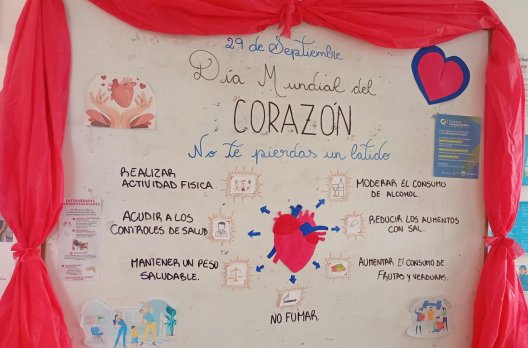 29 de Septiembre
Día Mundial del
CORAZÓN
No te pierdas un latido
REALIZAR
ACTIVIDAD FISICA
ACUDIR A LOS
CONTROLES DE SALUD
MANTENER UN PESO
SALUDABLE.
NO FUMAR
MODERAR EL CONSUMO
DE ALCOHOL.
REDUCIR LOS ALIMENTOS
CON SAL.
AUMENTAR EL CONSUMO DE
FRUTAS Y VERDURAS.
ENFERMEDADES